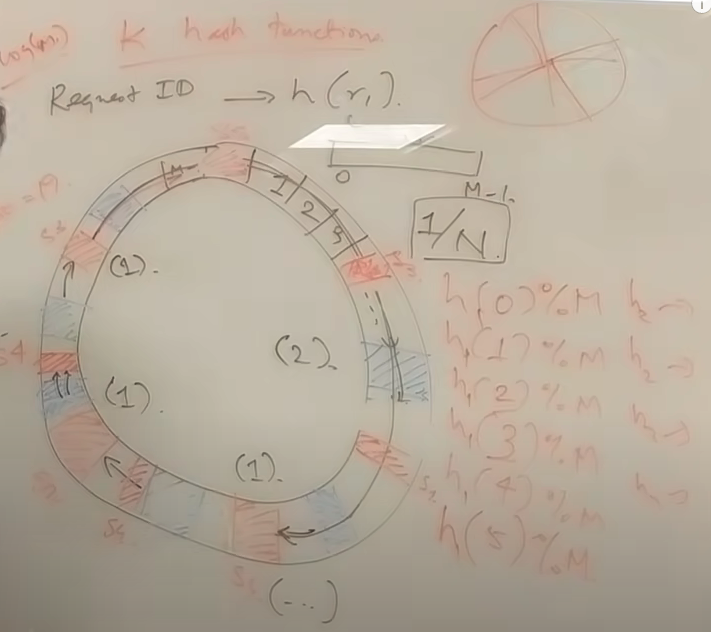 log(M)
K hash functions
Request ID → h(r₁).
0 M-1.
1/N.
M-1
1 2 3
S3
S3
(1).
(2).
S4
(1).
(1).
S2
S4
S1
(...)
h(0)%M h₂ →
h₁(1)%M h₂ →
h₁(2)%M
h₁(3)%M
h₁(4)%M
h(5)%M